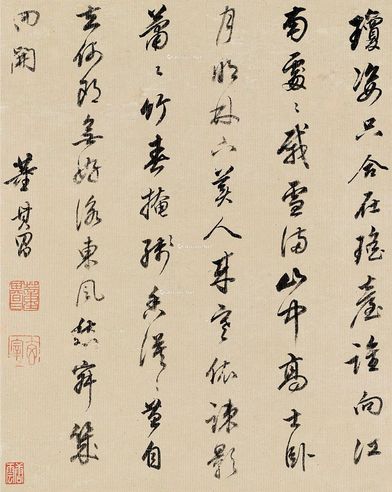 瓊姿只合在瑤臺誰向江
南處〻栽雪滿山中高士臥
月明林下美人來寒依疎影
蕭〻竹春掩殘香漠〻苔自
去何郎無好詠東風愁寂幾
回開
董其昌